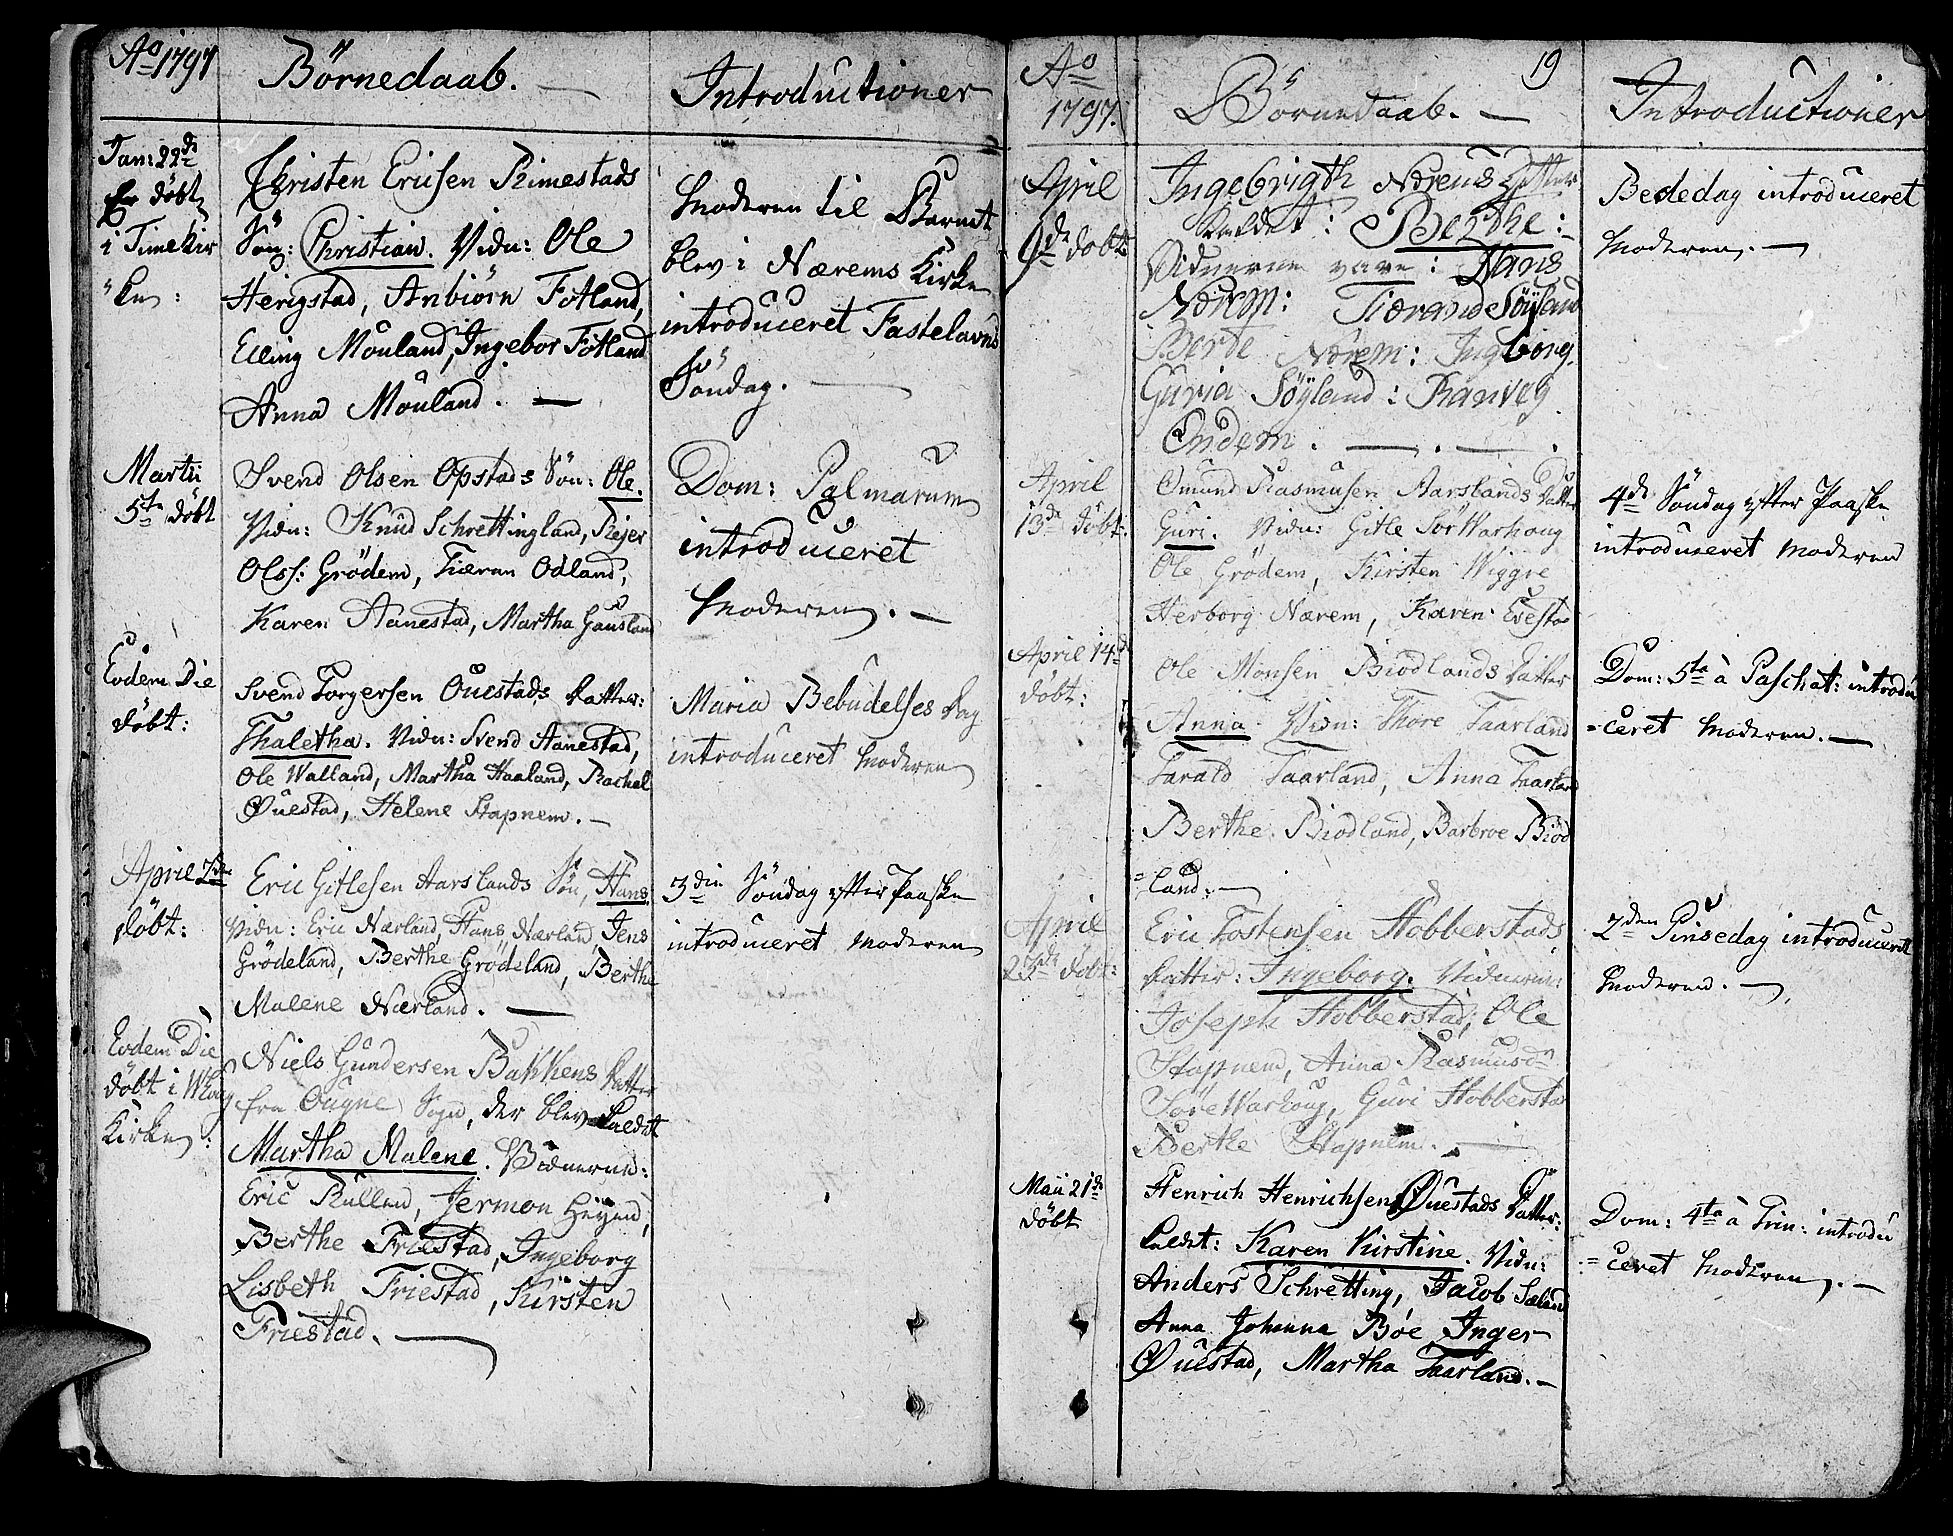 Ao 1797
Börnedaab. —
Introductioner
Jan: 22de
Er döbt
i Timekir
"ken:
Christen Ericsen Rimestads
Sön: Christian. Vidn: Ole
Herigstad, Anbiörn Fotland,
Elling Mouland, Ingebor Fotland
Anna Mouland. —
Moderen til Barnet
blev i Nærems Kirke
introduceret Fastelavns
Söndag. —
Martii
5te döbt
Svend Olsen Opstads Sön: Ole.
Vidn: Knud Schrettingland, Rejer
Olss: Grödem, Tiæran Odland,
Karen Aanestad, Martha Gausland
Dom: Palmarum
introduceret
Moderen. —
Eodem Die
döbt:
Svend Torgersen Ouestads Datter:
Thaletha. Vidn: Svend Aanestad,
Ole Walland, Martha Haaland, Rachel
Øuestad, Helene Stapnem. —
Maria Bebudelses Dag
introduceret Moderen
April 7de
döbt:
Eric Gitlesen Aarslands Sön, Hans.
Vidn: Eric Nærland, Hans Nærland, Jens
Grödeland, Berthe Grödeland, Berthe
Malene Nærland. —
3die Söndag efter Paaske
introduceret Moderen
Eodem Die
döbt i Whoug
Kirke:
Niels Gundersen Bakkens Datter
fra Ougne Sogn, der blev kaldet
Martha Malene. Vidnerne:
Eric Rullen, Jermon Heÿen,
Berthe Friestad, Ingeborg
Lisbeth Friestad, Kirsten
Friestad. —
Ao
1797.
Börnedaab. —
19
Introductioner
April
9de döbt
Ingebrigth Nærems Datter
kaldet: Berthe:
Vidnerne vare: Hans
Nærem: Tiærand Söÿland
Berte Nærem: Ingborg.
Guria Söÿland: Ranveg
Ondem. —
Bededag introduceret
Moderen. —
April
13de döbt:
Omund Rasmusen Aarslands Datter
Guri. Vidn: Gitle Sör Warhoug
Ole Grödem, Kirsten Wiggre
Herborg Nærem, Karen Evestad
4de Söndag efter Paaske
introduceret Moderen
April 14de
döbt:
Ole Monsen Biodlands Datter
Anna. Vidn: Thore Taarland
Tarald Taarland, Anna Taarland
Berthe Biodland, Barbroe Biod
=land. —
Dom: 5ta à Paschat: introdu
=ceret Moderen. —
April
23de döbt:
Eric Tostensen Hobberstads
Datter: Ingeborg. Vidnerne:
Joseph Hobberstad, Ole
Stapnem, Anna Rasmusdr
Söre Warhoug, Guri Hobberstad
Berthe Stapnem. —
2den Pinsedag introduceret
Moderen. —
Maii 21de
döbt
Henrich Henrichsen Øuestads Datter:
kaldt: Karen Kirstine. Vidn:
Anders Schretting, Jacob Sæland
Anna Johanna Böe Inger
Øuestad, Martha Taarland. —
Dom: 4ta à Trin: introdu
=ceret Moderen. —